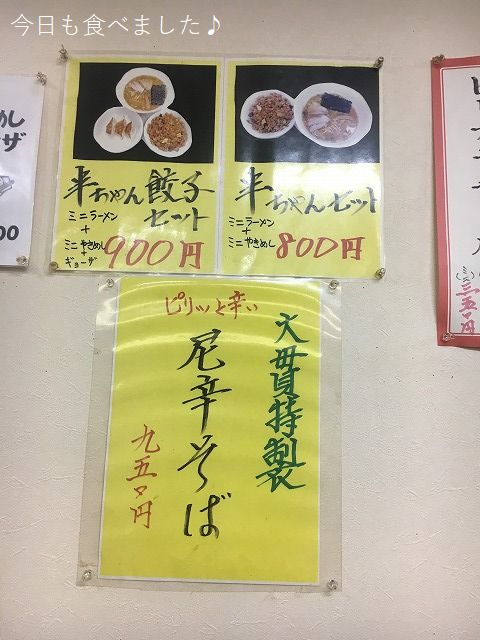 今日も食べました♪
半ちゃん餃子
セット
ミニラーメン
+
ミニやきめし
+
ギョーザ
900円
半ちゃんセット
ミニラーメン
+
ミニやきめし
800円
めし
ザ
00
三五〇円
大貫特製
ピリッと辛い
尼辛そば
九五〇円